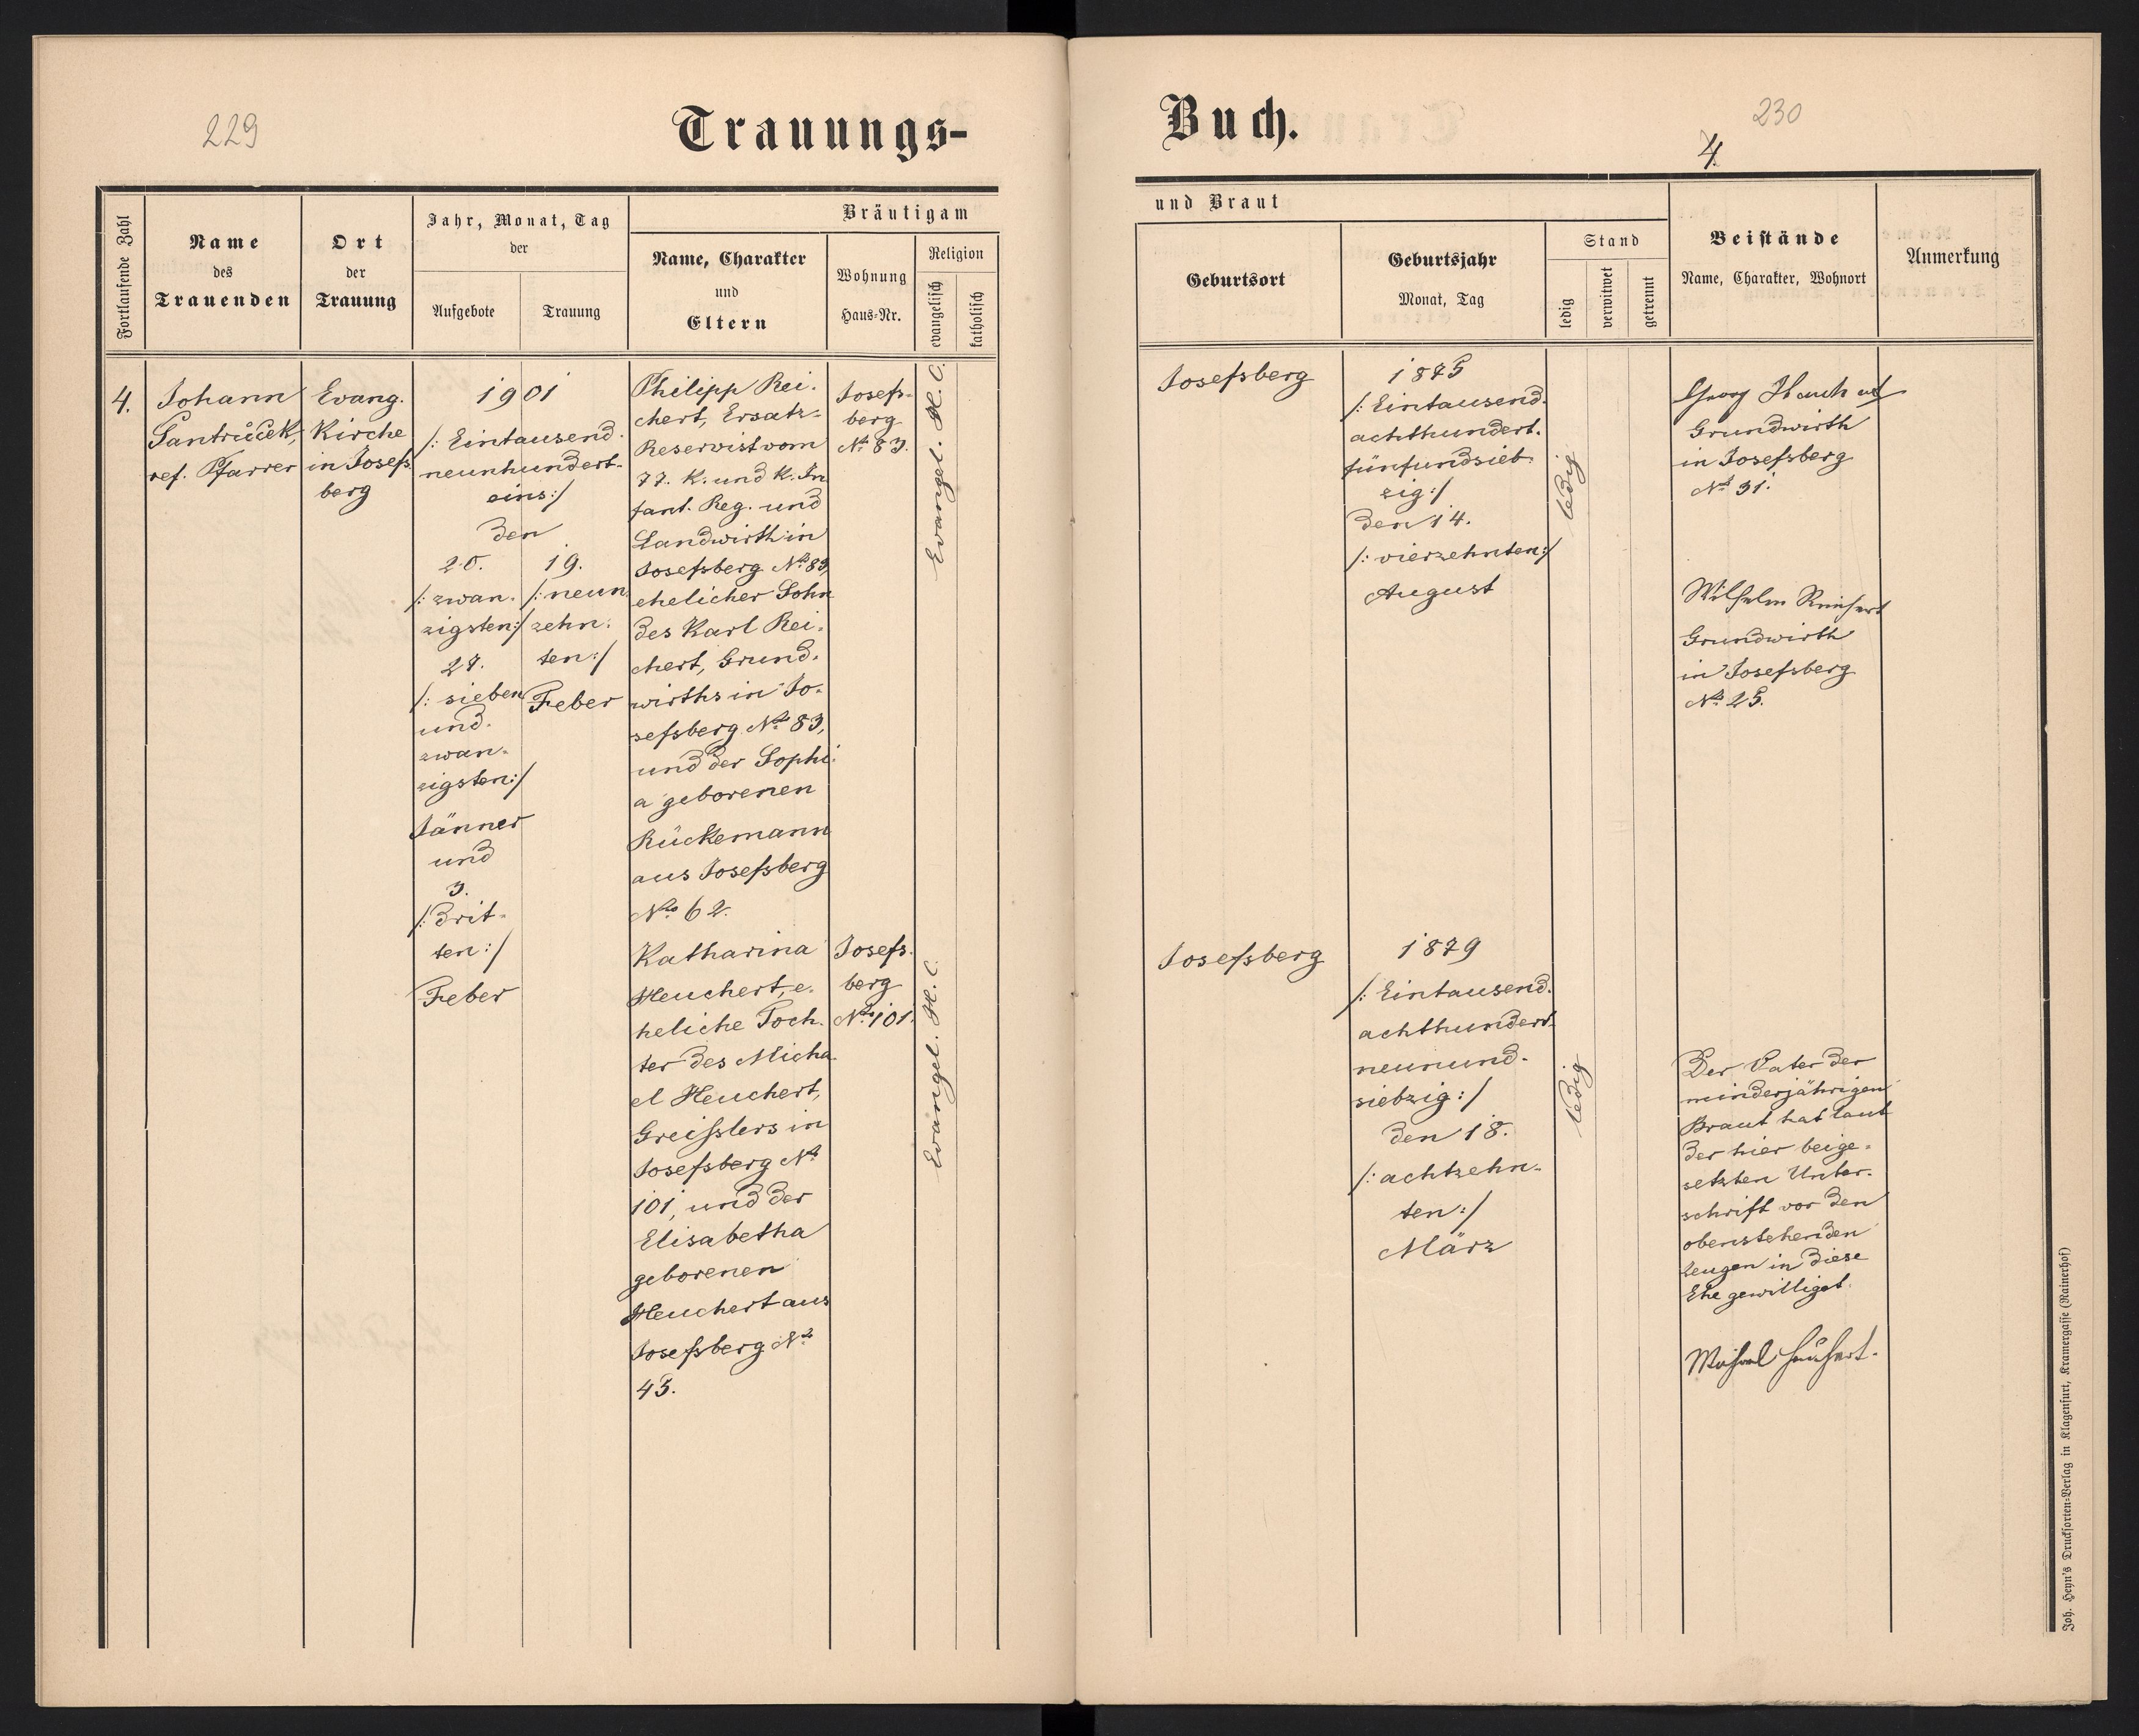 229
Trauungs-
Fortlaufende Zahl
Name
des
Trauenden
Ort
der
Trauung
Jahr, Monat, Tag
der
Aufgebote
Trauung
Bräutigam
Name, Charakter
und
Eltern
Wohnung
Haus-Nr.
Religion
evangelisch
katholisch
4.
Johann
Santrůček,
ref. Pfarrer
Evang.
Kirche
in Josefs
berg
1901
/: Eintausend-
neunhundert-
eins :/
den
20.
/: zwan-
zigsten :/
27.
/: sieben
und-
zwan-
zigsten :/
Jänner
und
3.
/: drit-
ten :/
Feber
19.
/: neun
zehn-
ten :/
Feber
Philipp Rei-
chert, Ersatz-
Reservist vom
77. K. und K. In
fant. Reg. und
Landwirth in
Josefsberg No 83,
ehelicher Sohn
des Karl Rei-
chert, Grund-
wirths in Jo-
sefsberg No 83,
und der Sophi-
a geborenen
Rückemann
aus Josefsberg
No 62.
Josefs-
berg
No 83.
Evangel. H. C.
Katharina
Heuchert, e-
heliche Toch-
ter des Micha-
el Heuchert,
Greisslers in
Josefsberg No
101, und der
Elisabetha
geborenen
Heuchert aus
Josefsberg No
45.
Josefs-
berg
No 101.
Evangel. H. C.
Buch.
230
4.
und Braut
Geburtsort
Geburtsjahr
Monat, Tag
Stand
ledig
verwitwet
getrennt
Beistände
Name, Charakter, Wohnort
Anmerkung
Josefsberg
1875
/: Eintausend-
achthundert-
fünfundsieb-
zig :/
den 14.
/: vierzehnten :/
August
ledig
Georg
Grundwirth
in Josefsberg
No 31.
Wilhelm Reichert
Grundwirth
in Josefsberg
No 25.
Josefsberg
1879
/: Eintausend-
achthundert-
neunund-
siebzig :/
den 18.
/: achtzehn-
ten :/
März
ledig
Der Vater der
minderjährigen
Braut hat laut
der hier beige-
setzten Unter-
schrift vor den
obenstehenden
Zeugen in diese
Ehe gewilligt.
Michael Heuchert.
Joh. Heyn's Drucksorten-Verlag in Klagenfurt, Kramergasse (Rainerhof)